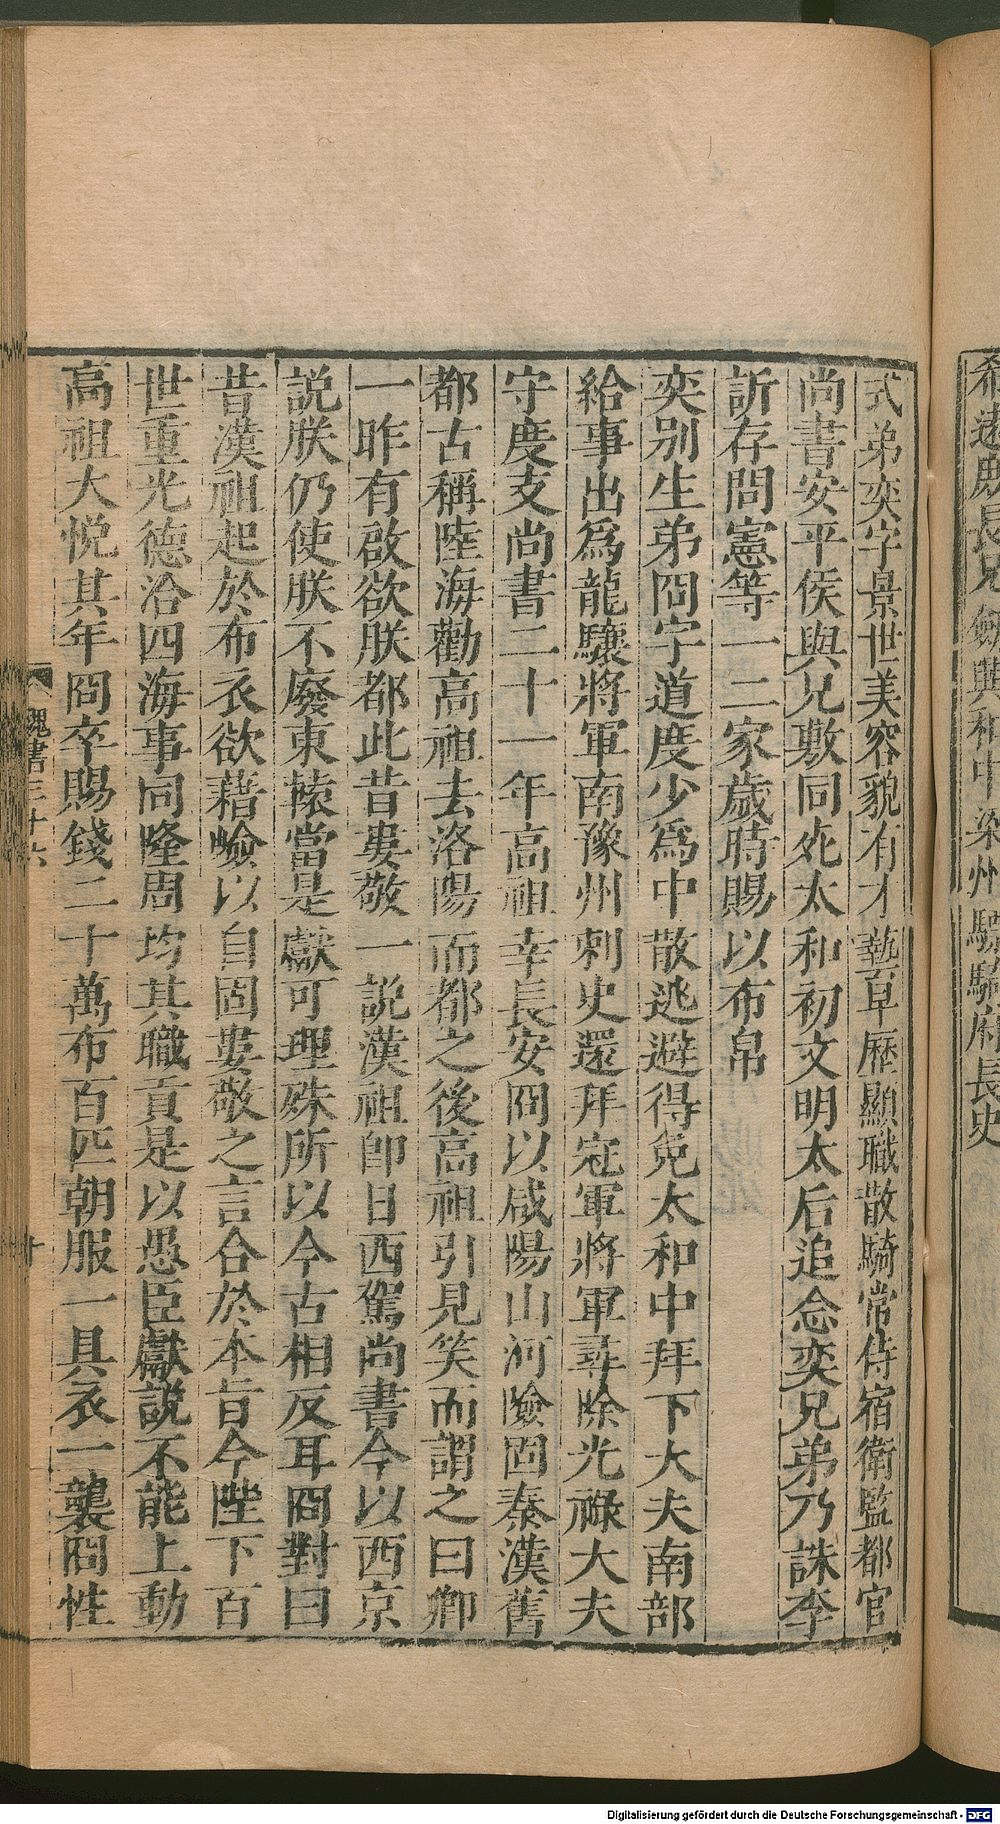 希遠庶長兄劍興和中梁州驃騎府長史
式弟奕字景世美容貌有才藝早歷顯職散騎常侍宿衛監都官
尚書安平侯與兄敷同死太和初文明太后追念奕兄弟乃誅李
訢存問憲等一二家歲時賜以布帛
奕别生弟冏字道度少爲中散逃避得免太和中拜下大夫南部
給事出爲龍驤將軍南豫州刺史還拜冠軍將軍尋除光祿大夫
守度支尚書二十一年高祖幸長安冏以咸陽山河險固秦漢舊
都古稱陸海勸高祖去洛陽而都之後高祖引見笑而謂之曰卿
一昨有啟欲朕都此昔婁敬一説漢祖即日西駕尚書今以西京
説朕仍使朕不廢東轅當是獻可理殊所以今古相反耳冏對曰
昔漢祖起於布衣欲藉嶮以自固婁敬之言合於本旨今陛下百
世重光德洽四海事同隆周均其職貢是以愚臣獻說不能上動
高祖大悦其年冏卒賜錢二十萬布百匹朝服一具衣一襲冏性
魏書三十六
十
Digitalisierung gefördert durch die Deutsche Forschungsgemeinschaft - DFG